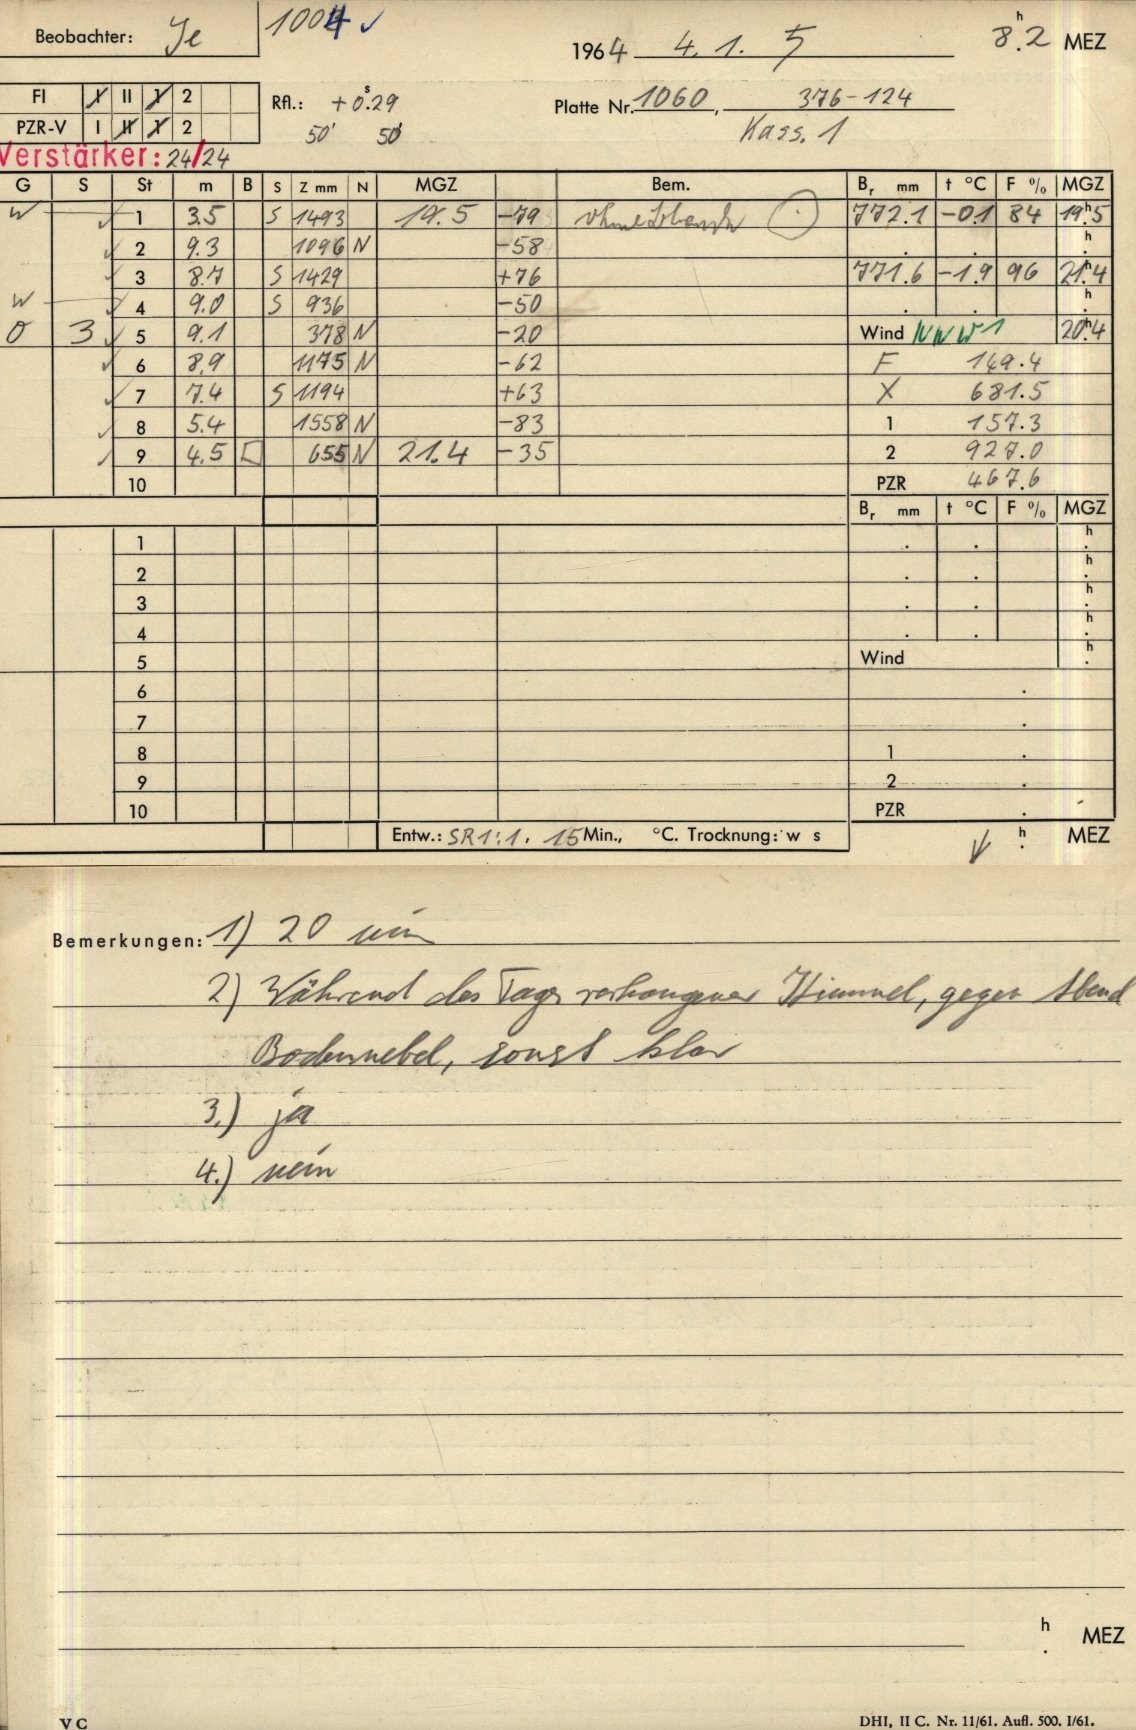 Beobachter: Je 1004 ✓ 1964 4. 1. 5 8.h2 MEZ
FI I II 1 2 Rfl.: +0.s29 Platte Nr. 1060, 376-124
PZR-V I II 1 2 50' 50' Kass. 1
Verstärker: 24/24
G S St m B S Z mm N MGZ Bem. Br mm t °C F % MGZ
W ✓ 1 3.5 S 1493 19.5 -79 772.1 -0.1 84 19.h5
✓ 2 9.3 1096 N -58 . . h.
✓ 3 8.7 S 1429 +76 771.6 -1.9 96 21.h4
W ✓ 4 9.0 S 936 -50 . . h.
O 3 ✓ 5 9.1 378 N -20 Wind NNW 1 20.h4
✓ 6 8.9 1175 N -62 F 149.4
✓ 7 7.4 S 1194 +63 X 681.5
✓ 8 5.4 1558 N -83 1 157.3
✓ 9 4.5 655 N 21.4 -35 2 927.0
10 PZR 467.6
Br mm t °C F % MGZ
1 . . h.
2 . . h.
3 . . h.
4 . . h.
5 Wind h.
6 .
7 .
8 1 .
9 2 .
10 PZR .
Entw.: SR 1:1, 15 Min., °C. Trocknung: w s h. MEZ
Bemerkungen: 1) 20 min
2) Während des Tages verhangener Himmel, gegen Abend
Bodennebel, sonst klar
3.) ja
4.) nein
h. MEZ
V C DHI, II C. Nr. 11/61. Aufl. 500. I/61.